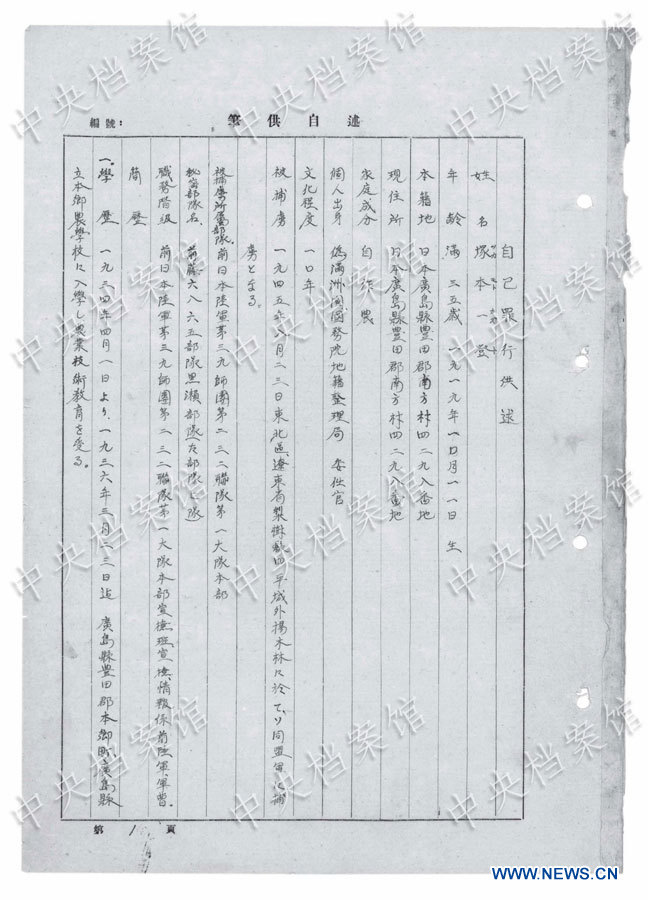 述自供筆
編號：
自己罪行供述
姓名 塚本一登
年齢 満三五歳 一九一九年一〇月一一日生
本籍地 日本廣島縣豊田郡南方村四二九八番地
現住所 日本廣島縣豊田郡南方村四二九八番地
家庭成分 自作農
個人出身 偽満洲國國務院地籍整理局 委任官
文化程度 一〇年
被捕虜 一九四五年八月二三日東北區、遼東省梨樹縣四平城外楊木林に於て、ソ同盟軍に捕
虜となる。
被捕虜所属部隊 前日本陸軍第三九師團第二三二聯隊第一大隊本部
秘密部隊名 藤六八六五部隊黒瀬部隊
職務階級 前日本陸軍第三九師團第二三二聯隊第一大隊本部宣撫班宣撫、情報係前陸軍軍曹。
簡歴
一、學歴 一九三四年四月一日より、一九三六年三月二三日迄 廣島縣豊田郡本郷町、廣島縣
立本郷農學校に入學し農業技術教育を受る。
第 1 頁
中央档案馆
WWW.NEWS.CN